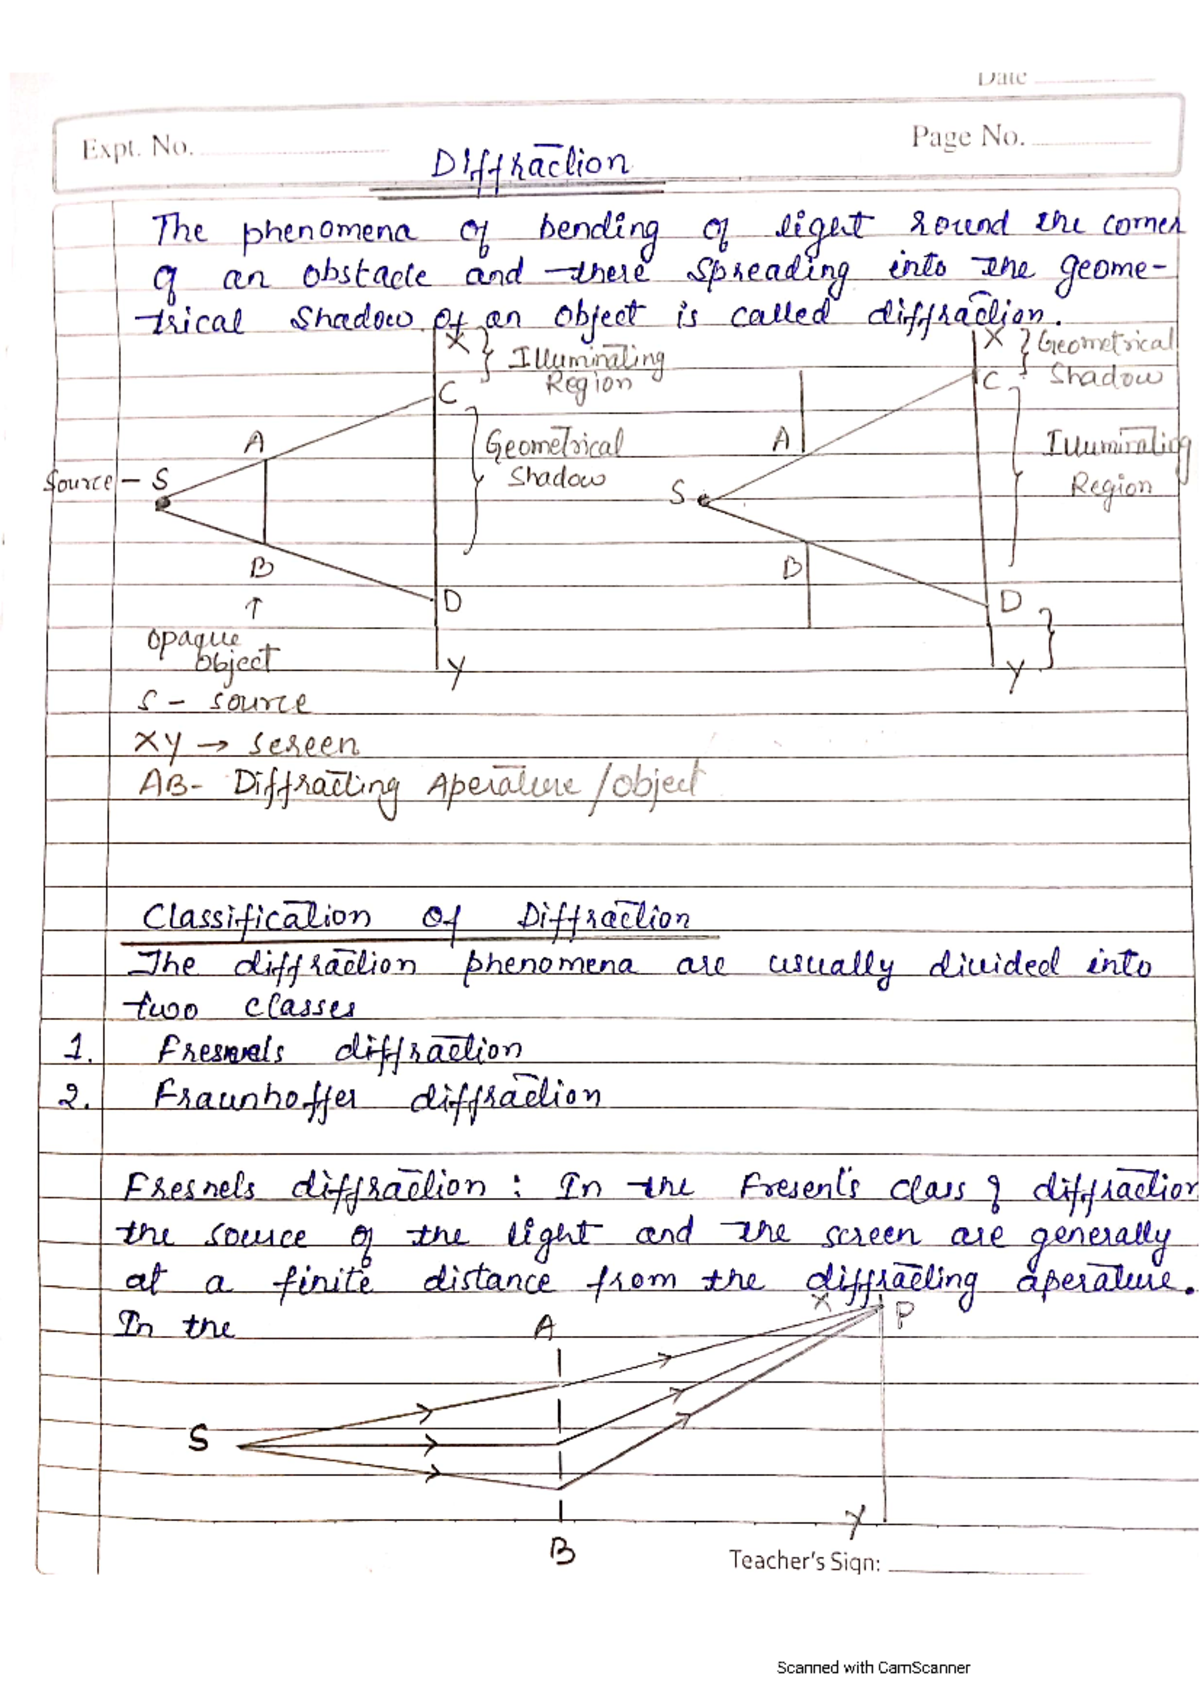 Date
Expt. No.
Page No.
Diffraction
The phenomena of bending of light round the corner
of an obstacle and there spreading into the geome-
trical Shadow of an object is called diffraction.
X } Illuminating
Region
C
A
Geometrical
Shadow
Source - S
B
D
↑
Opaque
object
Y
X } Geometrical
Shadow
C
A
Illuminating
Region
S
B
D
Y
S - source
XY → screen
AB- Diffracting Aperature /object
Classification of Diffraction
The diffraction phenomena are usually divided into
two classes
1. Fresnels diffraction
2. Fraunhoffer diffraction
Fresnels diffraction : In the Fresent's class of diffraction
the source of the light and the screen are generally
at a finite distance from the diffracting aperature.
In the
A
X
P
S
Y
B
Teacher's Sign:
Scanned with CamScanner